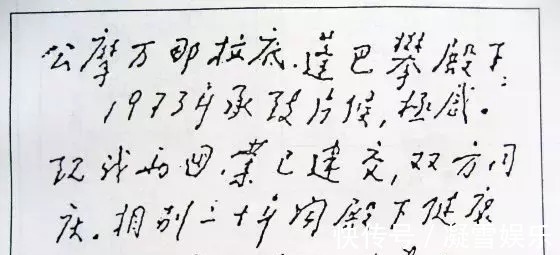 公摩万那拉底.蓬巴攀殿下:
1973年承致问候,极感。
现我两国.業已建交,双方同
庆.相别二十年闻殿下健康
快传号 / 凝雪娱乐